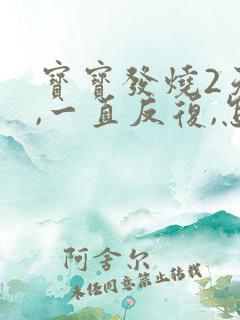 寶寶發燒2
,一直反復,
阿舍尔
未经同意禁止转载